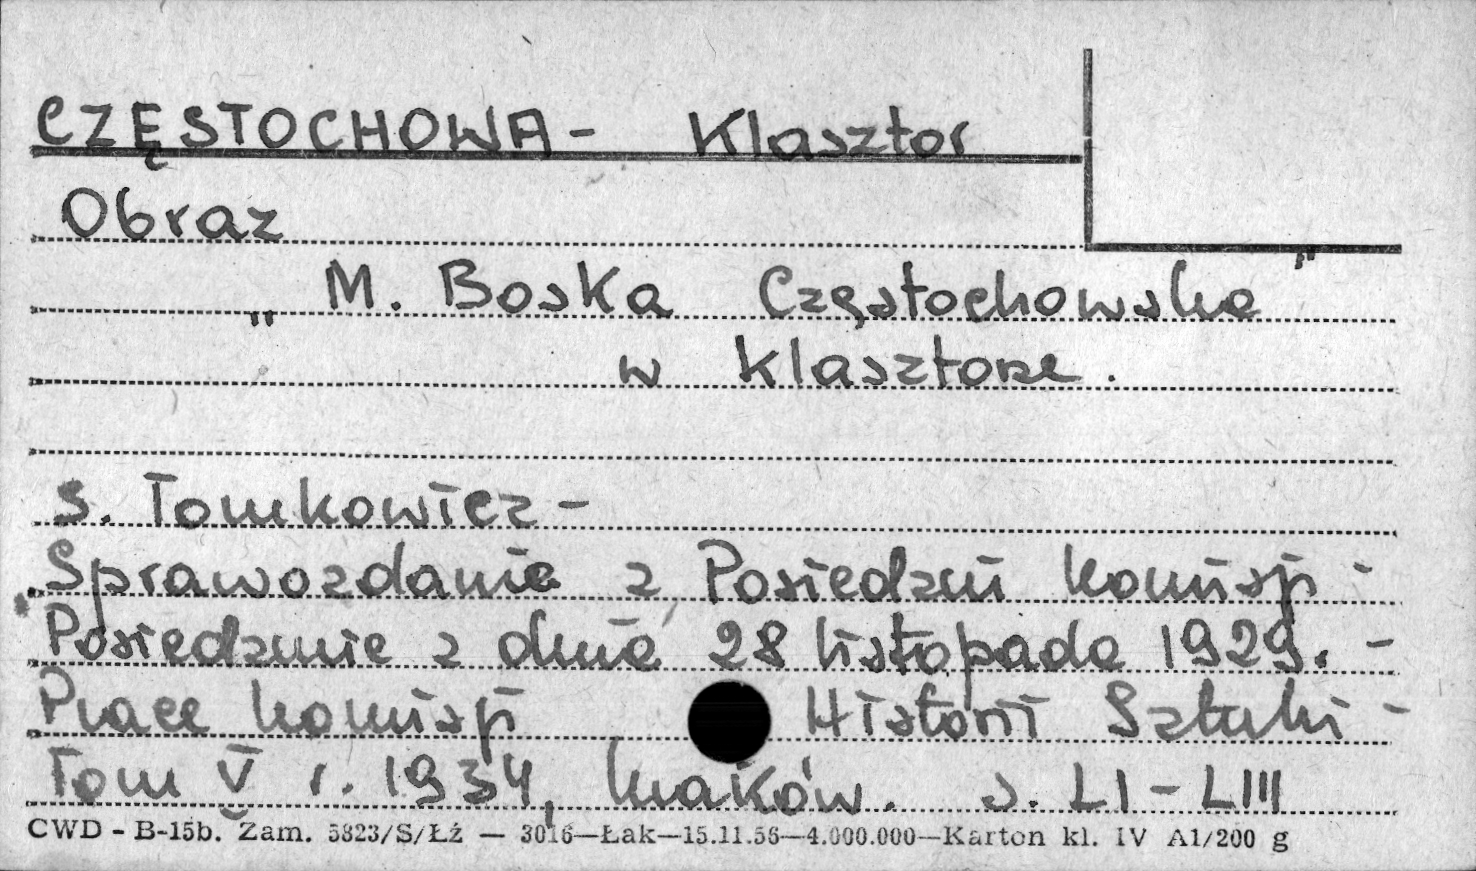 CZĘSTOCHOWA - Klasztor
Obraz
„M. Boska Częstochowska"
w klasztorze.
S. Tomkowicz -
Sprawozdanie z Posiedzeń Komisji -
Posiedzenie z dnia 28 listopada 1929. -
Prace Komisji Historii Sztuki -
Tom V r. 1934, Kraków. s. LI - LIII
CWD - B-15b. Zam. 5823/S/Łź — 3016—Łak—15.11.56—4.000.000—Karton kl. IV A1/200 g